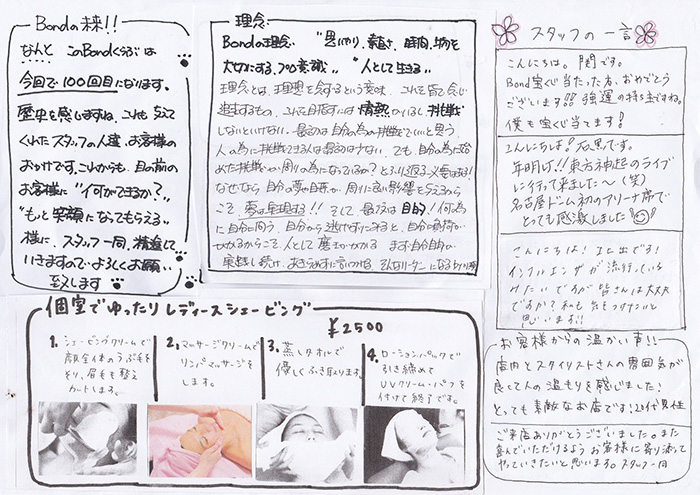 Bondの未来!!
なんと このBondくらぶは
今回で100回目になります。
歴史を感じますね、これも支えて
くれたスタッフの人達、お客様の
おかげです。これからも、目の前の
お客様に"何ができるか?"
"もっと笑顔になってもらえる"
様に、スタッフ一同、精進して
いきますのでよろしくお願い
致します
理念:
Bondの理念 "思いやり、素直さ、時間、物を
大切にする、プロ意識" "人として生きる"
理念とは、理想を
追求するもの。これを目指すには情熱がいるし挑戦
しないといけない。最初は自分の為の挑戦でいいと思う、
人の為に挑戦できる人は最初は少ない、でも、自分の為に始
めた挑戦が周りの為になっているか?とふり返る必要はある!
なぜなら自分の夢や目標が周りに良い影響を与えるから
こそ、夢は実現する!! そして最後は目的!何為
に自分に問う、自分から逃げずにやると、自分に負荷が
かかるからこそ、人として磨きがかかる まず自分自身が
実践し続け、あきらめずに言いつづける、そんなリーダーになる
スタッフの一言
こんにちは。関です。
Bond宝くじ当たった方、おめでとう
ございます!!強運の持ち主ですね。
僕も宝くじ当てます!
こんにちは!石黒です。
年明け!!東方神起のライブ
に行って来ました〜(笑)
名古屋ドーム初のアリーナ席で
とっても感激しました
こんにちは!江比出です!
インフルエンザが流行っている
みたいですが皆さんは大丈夫
ですか?私も気をつけたいと
思います!!
お客様からの温かい声!!
店内とスタイリストさんの雰囲気が
良くて人の温もりを感じました!
とっても素敵なお店です!20代男性
ご来店ありがとうございました。また
喜んでいただけるようお客様に寄り添って
やっていきたいと思います。スタッフ一同
個室でゆったりレディースシェービング
¥2500
1. シェービングクリームで
顔全体のうぶ毛を
そり、眉毛も整え
カートします。
2. マッサージクリームで
リンパマッサージを
します。
3. 蒸しタオルで
優しくふき取ります。
4. ローションパックで
引き締めて
UVクリーム・パフを
付けて終了です。